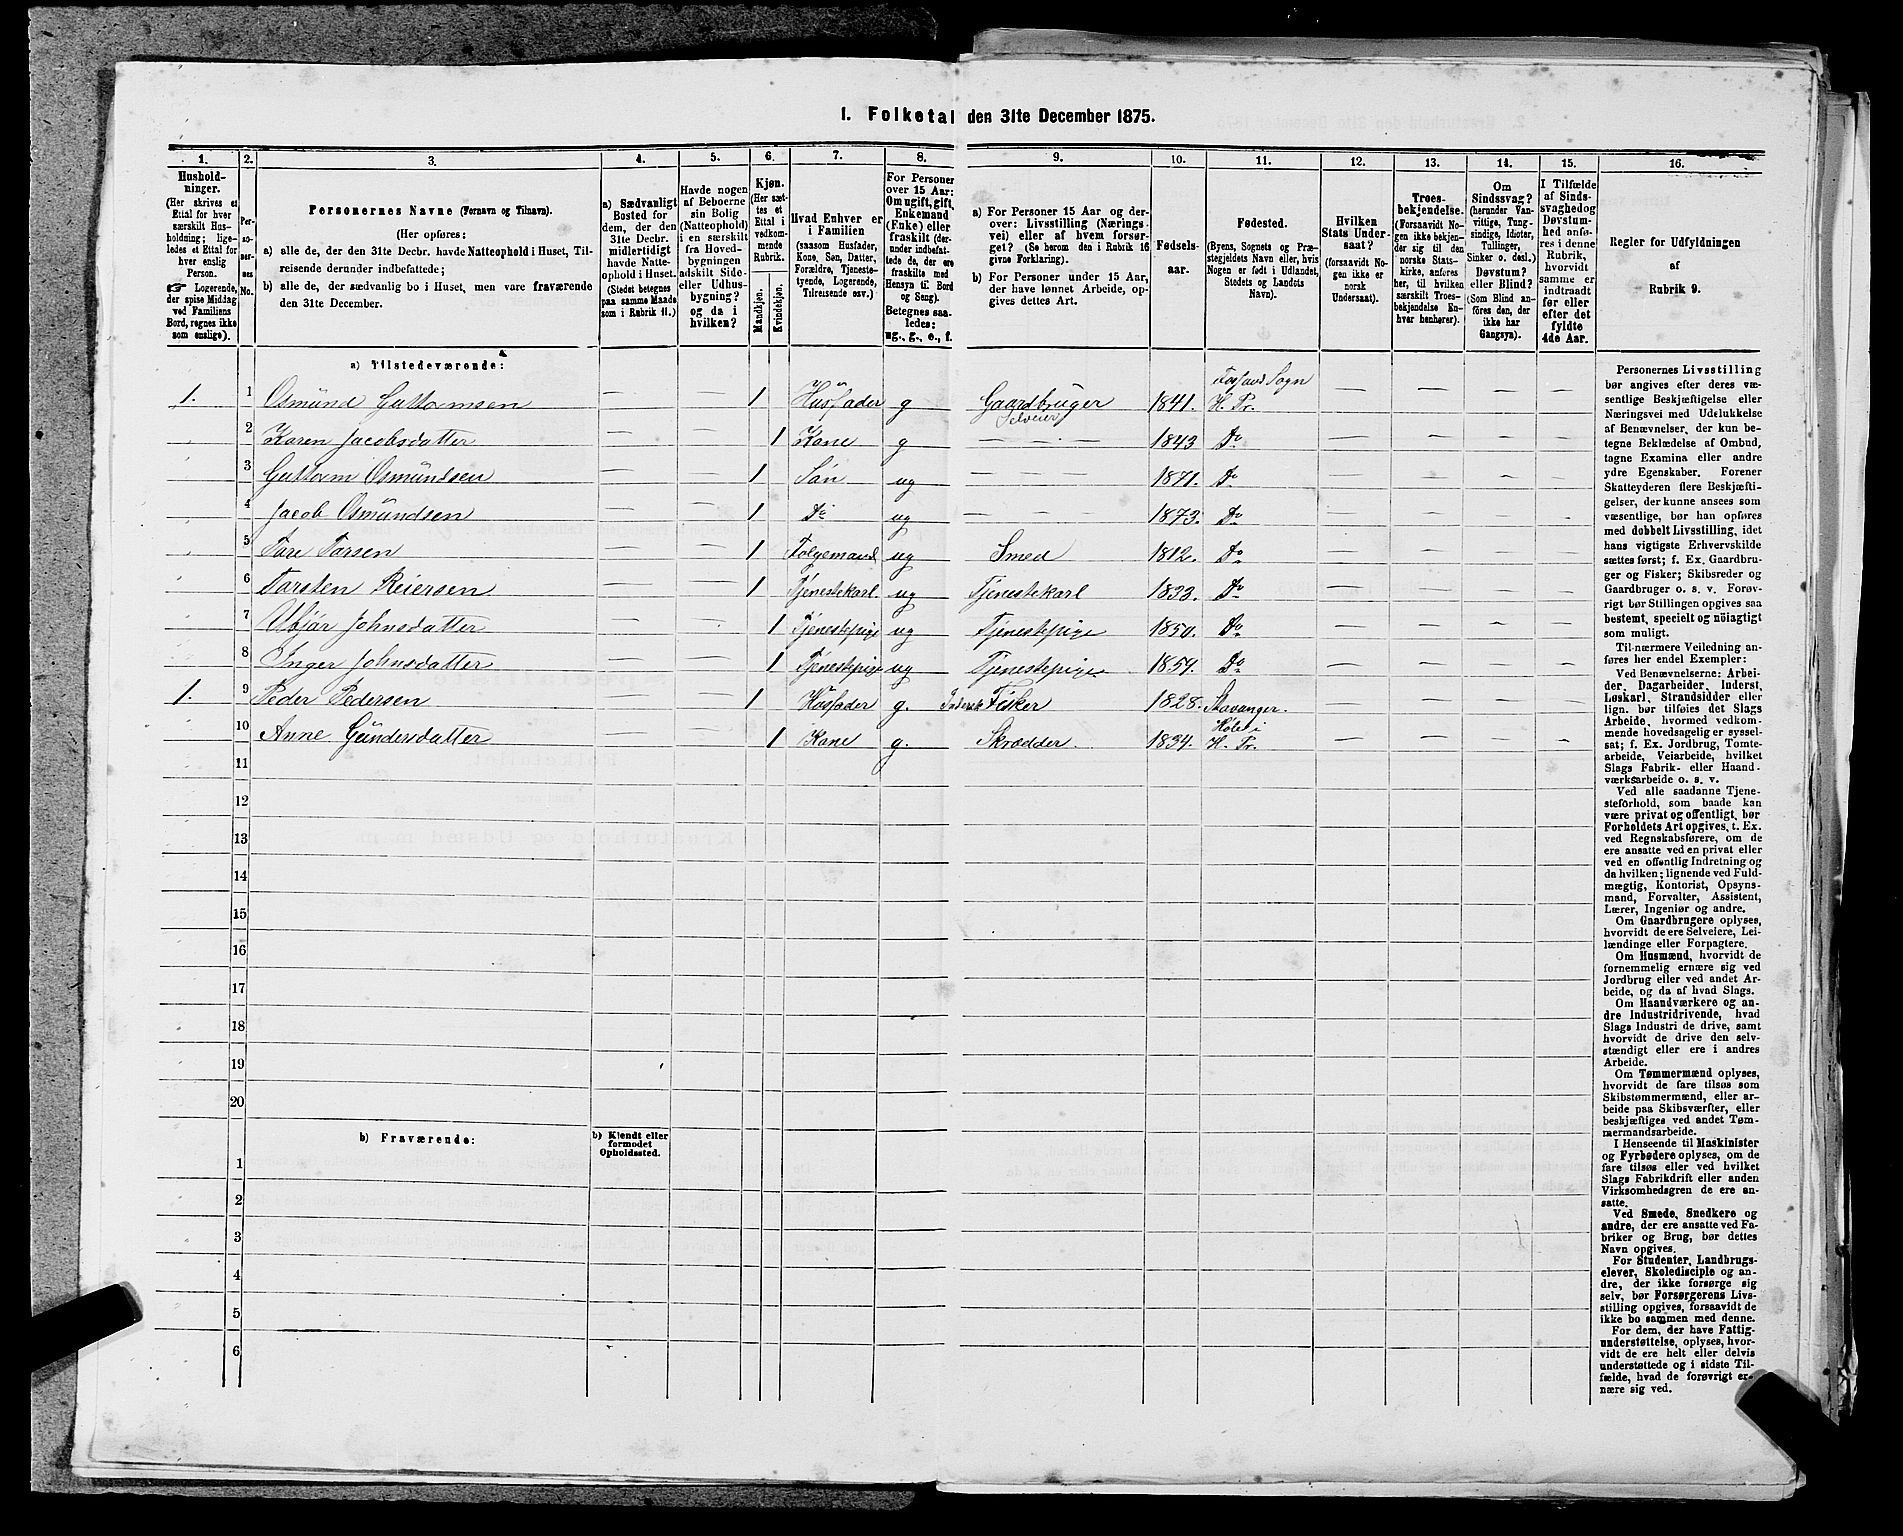 1. Folketal den 31te December 1875.
1. 2. 3. 4. 5. 6. 7. 8. 9. 10. 11. 12. 13. 14. 15. 16.
Hushold-
ninger.
(Her skrives et
Ettal for hver
særskilt Hus-
holdning; lige-
ledes et Ettal for
hver enslig
Person.
☞ Logerende,
der spise Middag
ved Familiens
Bord, regnes ikke
som enslige).
Per-
so-
ner-
nes
No.
Personernes Navne (Fornavn og Tilnavn).
(Her opføres:
a) alle de, der den 31te Decbr. havde Natteophold i Huset, Til-
reisende derunder indbefattede;
b) alle de, der sædvanlig bo i Huset, men vare fraværende
den 31te December.
a) Sædvanligt
Bosted for
dem, der den
31te Decbr.
midlertidigt
havde Natte-
ophold i Huset.
(Stedet betegnes
paa samme Maade
som i Rubrik 11.)
Havde nogen
af Beboerne
sin Bolig
(Natteophold)
i en særskilt
fra Hoved-
bygningen
adskilt Side-
eller Udhus-
bygning?
og da i
hvilken?
Kjøn.
(Her sæt-
tes et
Ettal i
vedkom-
mende
Rubrik.
Mandkjøn.
Kvindekjøn.
Hvad Enhver er
i Familien
(saasom Husfader,
Kone, Søn, Datter,
Forældre, Tjeneste-
tyende, Logerende,
Tilreisende osv.)
For Personer
over 15 Aar:
Om ugift, gift,
Enkemand
(Enke) eller
fraskilt (der-
under indbefat-
tede de, der ere
fraskilte med
Hensyn til Bord
og Seng).
Betegnes saa-
ledes:
ug., g., e., f.
a) For Personer 15 Aar og der-
over: Livsstilling (Nærings-
vei) eller af hvem forsør-
get? (Se herom den i Rubrik 16
givne Forklaring).
b) For Personer under 15 Aar,
der have lønnet Arbeide, op-
gives dettes Art.
Fødsels-
aar.
Fødested.
(Byens, Sognets og Præ-
stegjeldets Navn eller, hvis
Nogen er født i Udlandet,
Stedets og Landets
Navn).
Hvilken
Stats Under-
saat?
(forsaavidt No-
gen ikke er
norsk
Undersaat).
Troes-
bekjendelse.
(Forsaavidt No-
gen ikke bekjen-
der sig til den
norske Stats-
kirke, anføres
her, til hvilken
særskilt Troes-
bekjendelse En-
hver henhører).
Om
Sindssvag?
(herunder Van-
vittige, Tung-
sindige, Idioter,
Tullinger,
Sinker o. desl.)
Døvstum?
eller Blind?
(Som Blind an-
føres den, der
ikke har
Gangsyn).
I Tilfælde
af Sinds-
svaghed og
Døvstum-
hed anfø-
res i denne
Rubrik,
hvorvidt
samme er
indtraadt
før eller
efter det
fyldte
4de Aar.
Regler for Udfyldningen
af
Rubrik 9.
a) Tilstedeværende:
1. 1 Osmund Guttormsen — — 1 Husfader g Gaardbruger Selveier 1841. Forsand Sogn H. Pr. — — — —
2 Karen Jacobsdatter — — 1 Kone g — — 1843 Do — — — —
3 Guttorm Osmundsen — — 1 Søn ug — — 1871. Do — — — —
4 Jacob Osmundsen — — 1 Do ug — — 1873. Do — — — —
5 Tore Torsen — — 1 Folgemand ug Smed 1812. Do — — — —
6 Torsten Reiersen — — 1 Tjenestekarl ug Tjenestekarl 1833. Do — — — —
7 Johnsdatter — — 1 Tjenestepige ug Tjenestepige 1850. Do — — — —
8 Inger Johnsdatter — — 1 Tjenestepige ug Tjenestepige 1854. Do — — — —
1. 9 Peder Pedersen — — 1 Husfader g. Inderst Fisker 1828. Stavanger. — — — —
10 Anne Gundersdatter — — 1 Kone g. Skrædder. 1834. Høle i H. Pr. — — — —
11
12
13
14
15
16
17
18
19
20
b) Fraværende:
b) Kjendt eller
formodet
Opholdssted.
1
2
3
4
5
6
Personernes Livsstilling
bør angives efter deres væ-
sentlige Beskjæftigelse eller
Næringsvei med Udelukkelse
af Benævnelser, der kun be-
tegne Beklædelse af Ombud,
tagne Examina eller andre
ydre Egenskaber. Forener
Skatteyderen flere Beskjæfti-
gelser, der kunne ansees som
væsentlige, bør han opføres
med dobbelt Livsstilling, idet
hans vigtigste Erhvervskilde
sættes først; f. Ex. Gaardbru-
ger og Fisker; Skibsreder og
Gaardbruger o. s. v. Forøv-
rigt bør Stillingen opgives saa
bestemt, specielt og nöiagtigt
som muligt.
Til nærmere Veiledning an-
føres her endel Exempler:
Ved Benævnelserne: Arbei-
der, Dagarbeider, Inderst,
Løskarl, Strandsidder eller
lign. bør tilføies det Slags
Arbeide, hvormed vedkom-
mende hovedsagelig er syssel-
sat; f. Ex. Jordbrug, Tomte-
arbeide, Veiarbeide, hvilket
Slags Fabrik- eller Haand-
værksarbeide o. s. v.
Ved alle saadanne Tjene-
steforhold, som baade kan
være privat og offentligt, bør
Forholdets Art opgives, t. Ex.
ved Regnskabsførere, om de
ere ansatte ved en privat eller
ved en offentlig Indretning og
da hvilken; lignende ved Fuld-
mægtig, Kontorist, Opsyns-
mand, Forvalter, Assistent,
Lærer, Ingeniør og andre.
Om Gaardbrugere oplyses,
hvorvidt de ere Selveiere, Lei-
lændinge eller Forpagtere.
Om Husmænd, hvorvidt de
fornemmelig ernære sig ved
Jordbrug eller ved andet Ar-
beide, og da af hvad Slags.
Om Haandværkere og an-
dre Industridrivende, hvad
Slags Industri de drive, samt
hvorvidt de drive den selv-
stændigt eller ere i andres
Arbeide.
Om Tømmermænd oplyses,
hvorvidt de fare tilsøs som
Skibstømmermænd, eller ar-
beide paa Skibsværfter, eller
beskjæftiges ved andet Tøm-
mermandsarbeide.
I Henseende til Maskinister
og Fyrbødere oplyses, om de
fare tilsøs eller ved hvilket
Slags Fabrikdrift eller anden
Virksomhedsgren de ere an-
satte.
Ved Smede, Snedkere og
andre, der ere ansatte ved Fa-
briker og Brug, bør dettes
Navn opgives.
For Studenter, Landbrugs-
elever, Skoledisciple og an-
dre, der ikke forsørge sig
selv, bør Forsørgerens Livs-
stilling opgives, forsaavidt de
ikke bo sammen med denne.
For dem, der have Fattig-
understøttelse, oplyses, hvor-
vidt de ere helt eller delvis
understøttede og i sidste Til-
fælde, hvad de forøvrigt er-
nære sig ved.